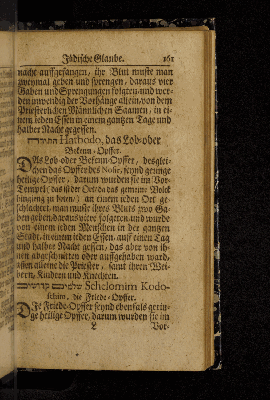 Jüdische Glaube. 161
nacht auffgefangen, ihr Blut muste man
zweymal geben und sprengen, daraus vier
Gaben und Sprengungen folgten und wer-
den inwendig der Vorhänge allein von dem
Priesterlichen Männlichen Saamen, in ei-
nem jeden Essen in einem gantzen Tage und
halber Nacht gegessen.
Hathodo, das Lob-oder
Bekenn-Opffer.
DAs Lob-oder Bekenn-Opffer, desglei-
chen das Opffer des seynd geringe
heilige Opffer, darum wurden sie im Vor-
Tempel (das ist der Ort da das gemeine Volck
hingieng zu beten) an einem jeden Ort ge-
schlachtet, man muste ihres Bluts zwo Ga-
ben geben daraus viere folgten und wurde
von einem jeden Menschen in der gantzen
Stadt, in einem jeden Essen, auff einen Tag
und halbe Nacht gessen, das aber von ih-
nen abgeschnitten oder auffgehaben ward,
assen alleine die Priester, samt ihren Wei-
bern, Kindern und Knechten.
Schelomim Kodo-
schim, die Friede-Opffer.
DIe Friede-Opffer seynd ebenfals gerin-
ge heilige Opffer, darum wurden sie im
L Vor-